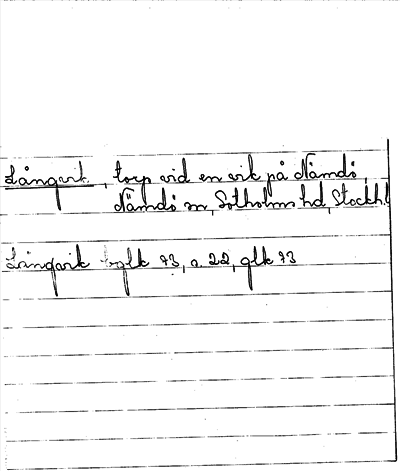 Långvik, torp vid en vik på Nämdö,
Nämdö sn, Sotholms hd, Stockh.l
Långvik tglk 73, a. 22, glk 73